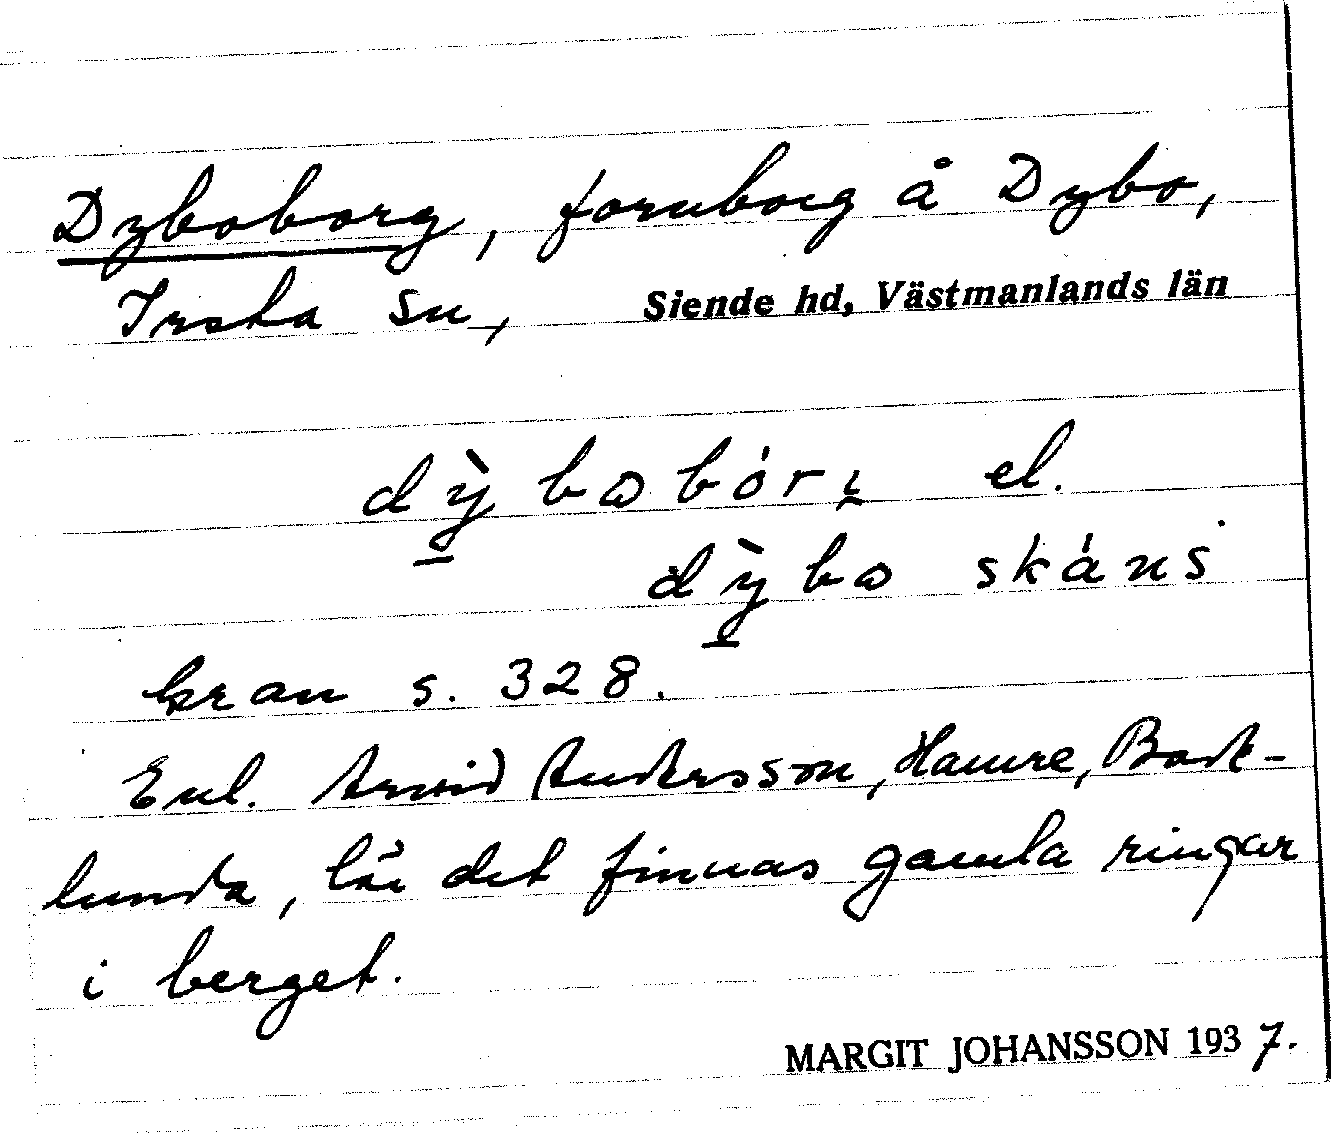 Dyboborg, fornborg å Dybo,
Irsta sn, Siende hd, Västmanlands län
dỳbobór̨ el.
dỳbo skáns
kran s. 328.
Enl. Arvid Andersson, Hamre, Badelunda, lär det finnas gamla ringar
i berget.
MARGIT JOHANSSON 1937.